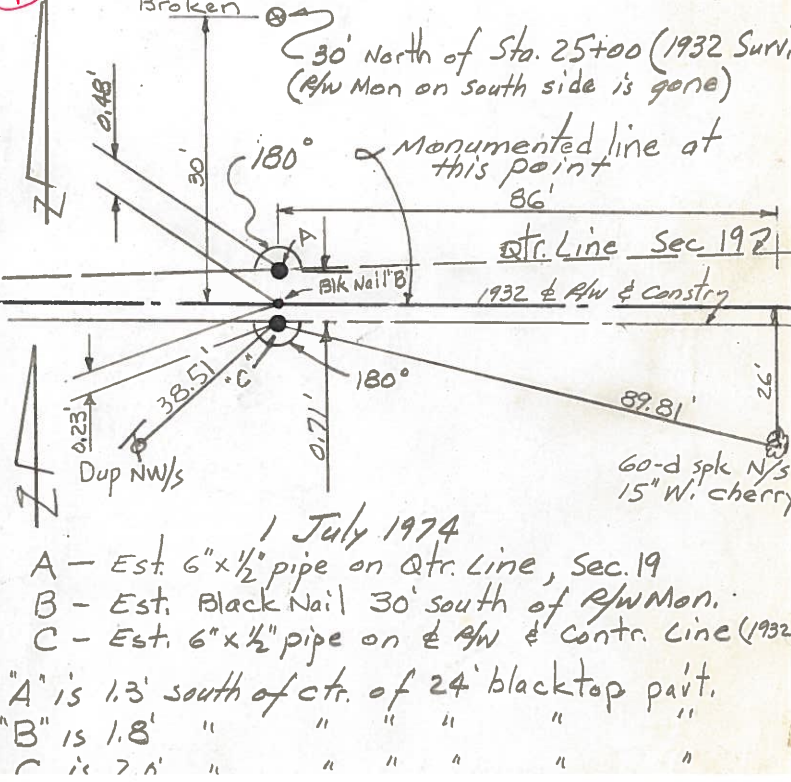 Broken
30' North of Sta. 25+00 (1932 Surv
(R/W Mon on south side is gone)
0.48'
30'
180°
Monumented line at
this point
86'
A
Qtr. Line Sec 19
Blk Nail "B"
1932 ⅊ R/W & Constr
"C"
180°
38.51'
89.81'
26'
0.23'
0.71'
Dup NW/s
60-d spk N/s
15" W. cherry
1 July 1974
A - Est. 6" x 1/2" pipe on Qtr. Line, Sec. 19
B - Est. Black Nail 30' south of R/W Mon.
C - Est. 6" x 1/2" pipe on ⅊ R/W & Contr. Line (1932
"A" is 1.3' south of ctr. of 24' blacktop pav't.
"B" is 1.8' " " " " " "
C is " " " " " "